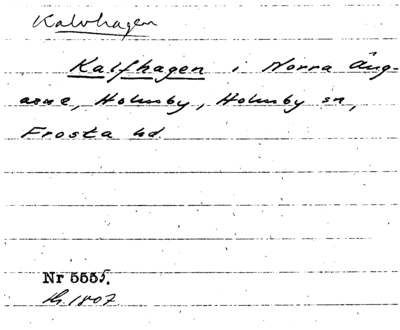 Kalvhagen
Kalfhagen i Norra Äng-
arne, Holmby, Holmby sn,
Frosta hd
Nr 5555.
1807